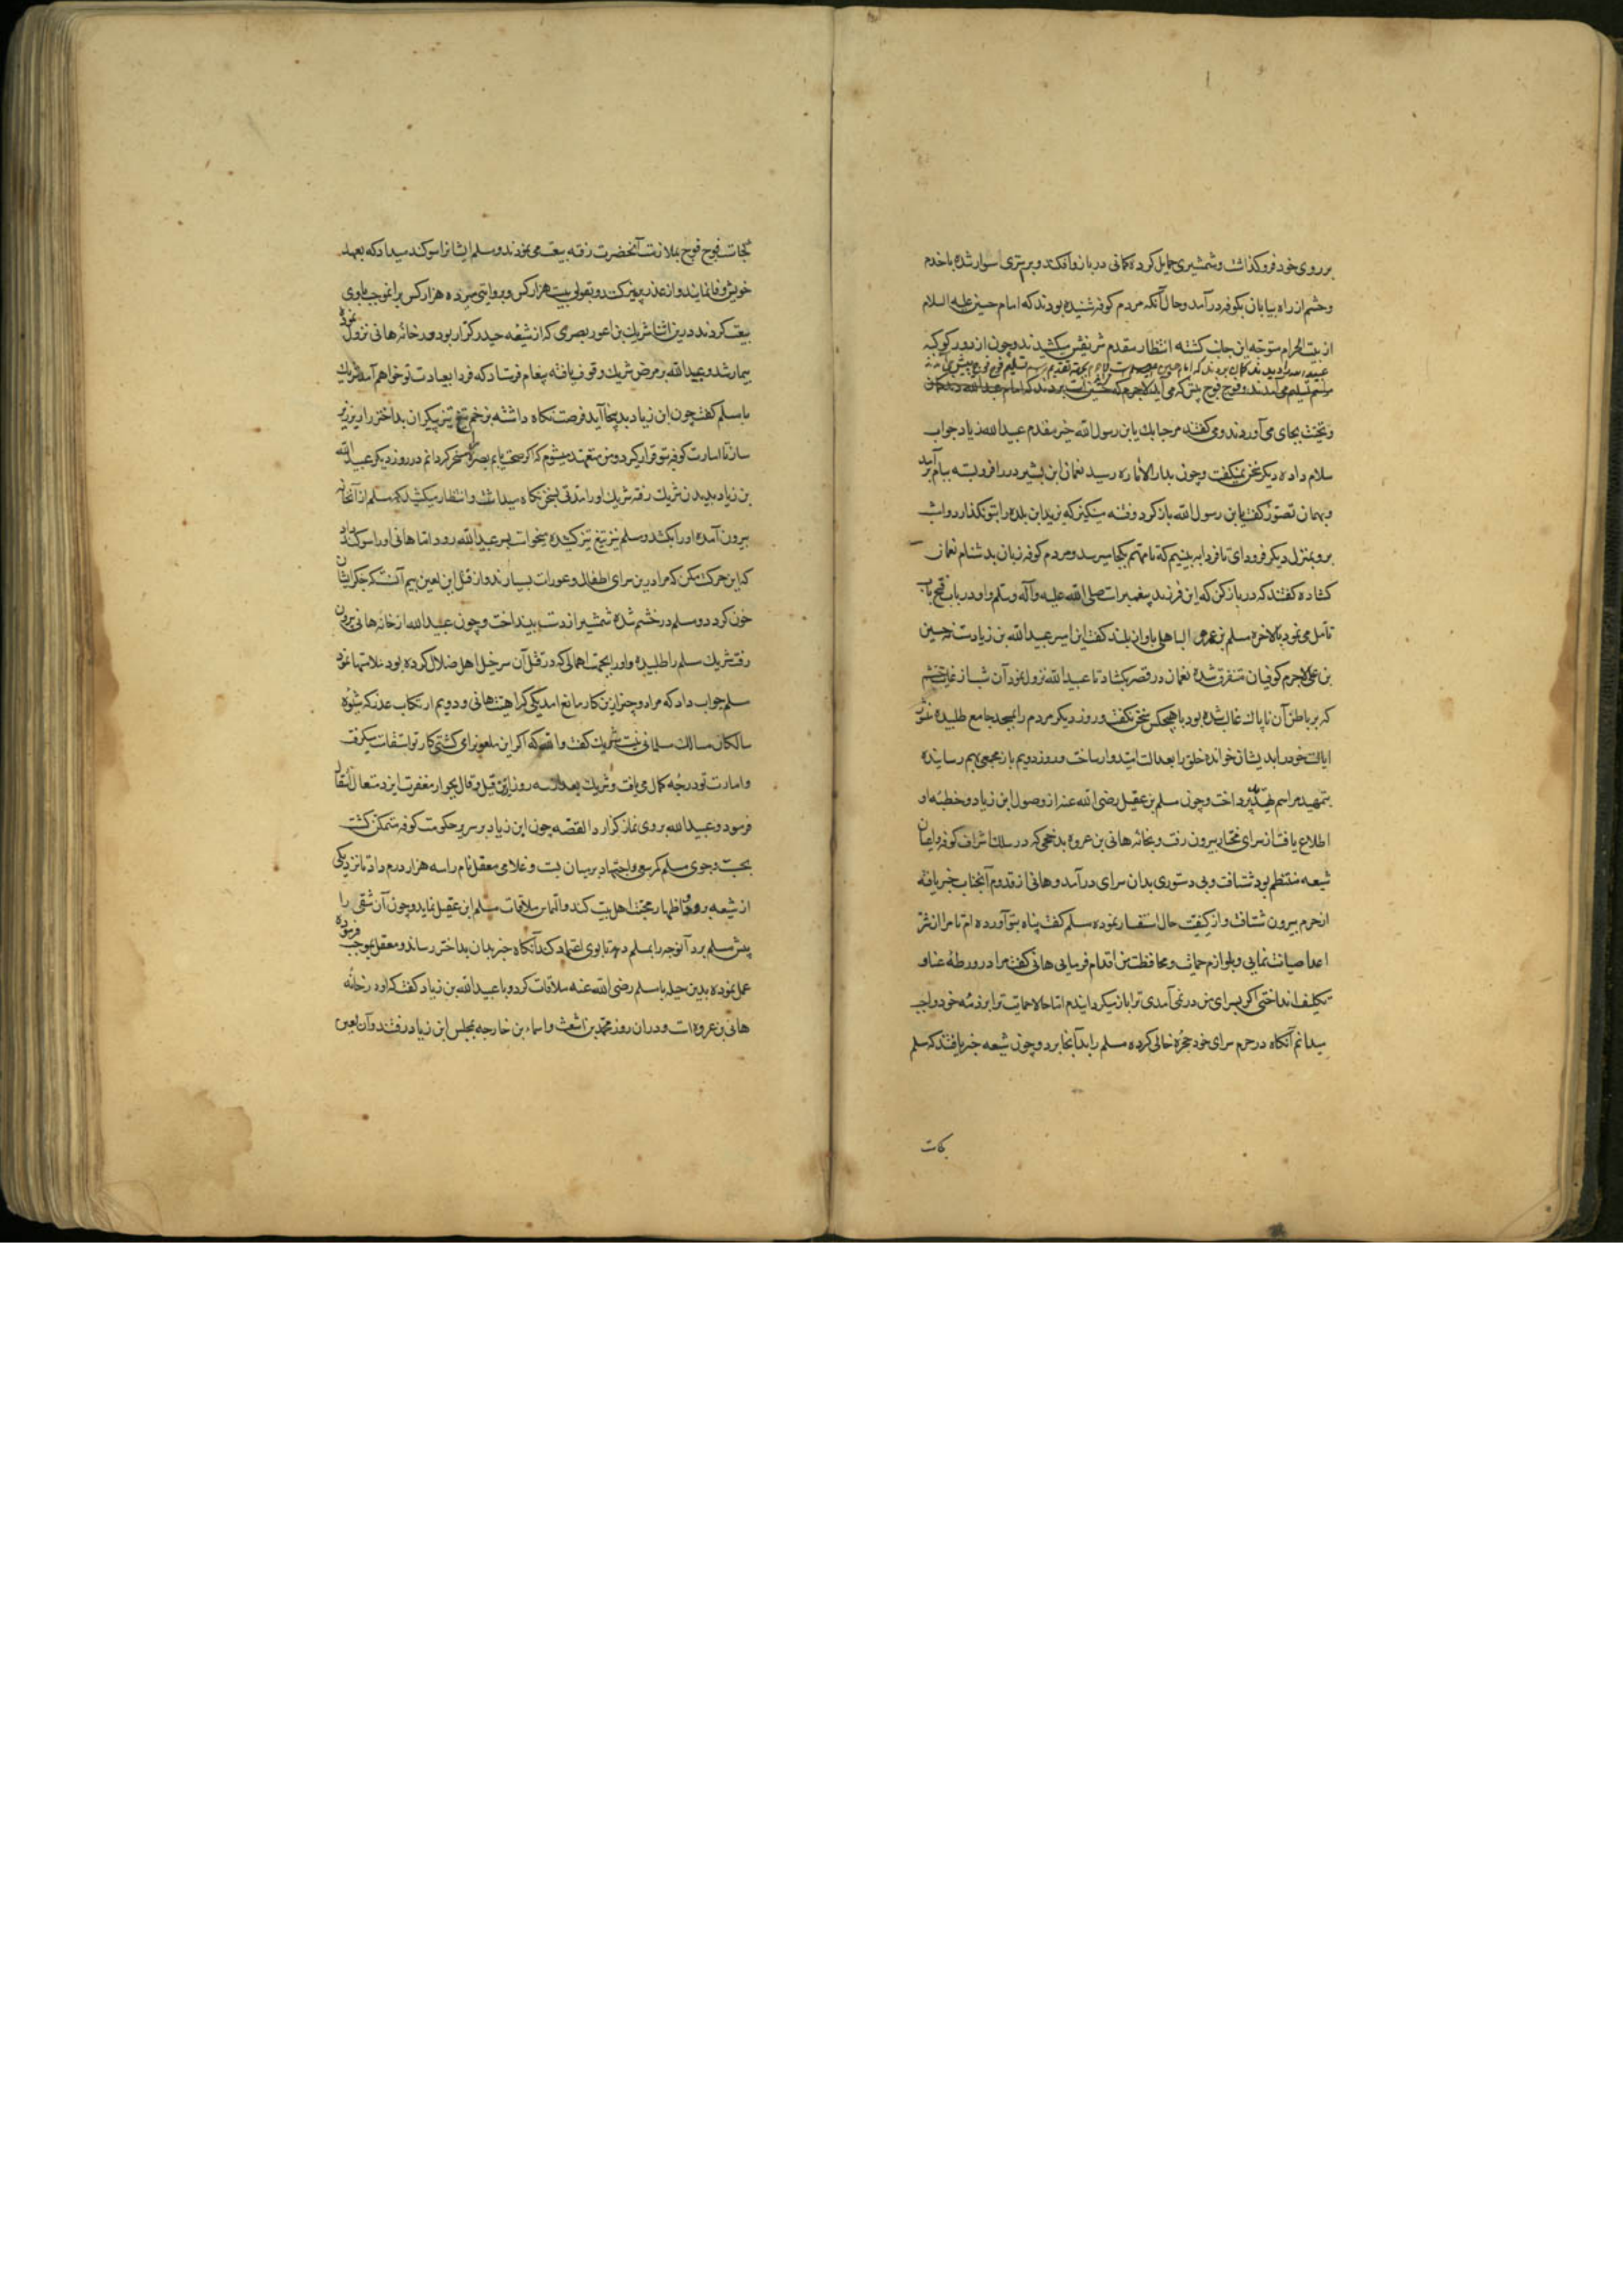 بر روی خود فروکذاشت و شمشیری حمایل کرده کمانی در بازو افکند و بر استری سوار شده با خدم
و حشم از راه بیابان بکوفه در آمد و حال آنکه مردم کوفه شنیده بودند که امام حسین علیه السلام
از بیت الحرام متوجه این جانب کشته انتظار مقدم شریفش میکشیدند و چون از دور کوکبه
عبید الله را دیدند کمان بردند که امام حسین
مراسم تسلیم می آمدند و فوج فوج پیش که می آید لاجرم
و تحیت بجای می آوردند و می کفتند مرحبا بک یا بن رسول الله خیر مقدم عبید الله زیاد جواب
سلام داده دیکر سخن نمیکفت و چون بدار الاماره رسید نعمان ابن بشیر در را فرو بسته ببام بر آمد
و بهمان تصور کفت یا بن رسول الله باز کرد و فتنه مینکیز که یزید این بلده را بتو نکذارد و امشب
برو بمنزل دیکر فرود ای تا فردا ببینیم که تا مهم بکجا میرسد و مردم کوفه زبان بدشنام نعمان
کشاده کفتند که در باز کن که این فرزند پیغمبر است صلی الله علیه و آله و سلم و او در باب فتح باب
تأمل می نمود بالاخره مسلم بن عمرو الباهلی باواز بلند کفت این امیر عبید الله بن زیادست نه حسین
بن علی لاجرم کوفیان متفرق شده نعمان در قصر بکشاد تا عبید الله نزول نمود آن شب از غایت خشم
که بر باطن آن ناپاک غالب شده بود با هیچکس سخن نکفت و روز دیکر مردم را بمسجد جامع طلبیده منشور
ایالت خود را بدیشان خوانده خلق را بعدالت امیدوار ساخت و روز دویم باز مجمعی بهم رسانیده
بتمهید مراسم تهدید پرداخت و چون مسلم بن عقیل رضی الله عنه از وصول ابن زیاد و خطبه او
اطلاع یافت از سرای مختار بیرون رفت و بخانه هانی بن عروه مذحجی که در سلک اشراف کوفه و اعیان
شیعه منتظم بود شتافت و بی دستوری بدان سرای در آمد و هانی از قدوم آنجناب خبر یافته
از حرم بیرون شتافت و از کیفیت حال استفسار نموده مسلم کفت پناه بتو آورده ام تا مرا از شر
اعدا صیانت نمایی و بلوازم حمایت و محافظت من اقدام فرمایی هانی کفت مرا در ورطه عنا و
تکلیف انداختی اکر بسرای من در نمی آمدی ترا باز میکردانیدم اما حالا حمایت ترا بر ذمه خود واجب
میدانم آنکاه در حرم سرای خود حجره خالی کرده مسلم را بدآنجا برد و چون شیعه خبر یافتند که مسلم
کجاست
کجاست فوج فوج بملازمت آنحضرت رفته بیعت می نمودند و مسلم ایشانرا سوکند میداد که بعهد
خویش وفا نمایند و از غدر بپرهیزند و بقولی بیست هزار کس و بروایتی هژده هزار کس بدآنموجب با وی
بیعت کردند درین اثنا شریک بن اعور بصری که از شیعه حیدر کرار بود در خانه هانی نزول نموده
بیمار شد و عبید الله بر مرض شریک وقوف یافته پیغام فرستاد که فردا بعیادت تو خواهم آمد شریک
با مسلم کفت چون ابن زیاد بدینجا آید فرصت نکاه داشته بزخم تیغ تیز پیکر آن بداختر را ریز ریز
ساز تا امارت کوفه بتو قرار کیرد و من متعهد میشوم که اکر صحت یابم بصره را مسخر کردانم در روز دیکر عبید الله
بن زیاد بدیدن شریک رفته شریک او را مدتی بسخن نکاه میداشت و انتظار میکشید که مسلم از آنخانه
بیرون آمده او را بکشد و مسلم نیز تیغ تیز کشیده میخواست بسر عبید الله رود اما هانی او را سوکند داد
که این حرکت مکن که مرا درین سرای اطفال و عورات بسیارند و از قتل این لعین بیم آنست که جکر ایشان
خون کردد و مسلم در خشم شده شمشیر از دست بینداخت و چون عبید الله از خانه هانی بیرون
رفت شریک مسلم را طلبیده و او را بجهت اهمالی که در قتل آن سرخیل اهل ضلال کرده بود ملامتها نمود
مسلم جواب داد که مرا دو چیز ازین کار مانع آمد یکی کراهیت هانی و دویم ارتکاب غدر که شیوه
سالکان مسالک مسلمانی نیست شریک کفت والله که اکر این ملعون را می کشتی کار تو استقامت میکرفت
و امارت تو درجه کمال می یافت و شریک بعد از سه روز ازین قیل و قال بجوار مغفرت ایزد متعال انتقال
فرمود و عبید الله بر وی نماز کزارد القصه چون ابن زیاد بر سریر حکومت کوفه متمکن کشت
بجست و جوی مسلم کمر سعی و اجتهاد بر میان بست و غلامی معقل نام را سه هزار درم داد تا نزد یکی
از شیعه رود و اظهار محبت اهل بیت کند و التماس ملاقات مسلم ابن عقیل نماید و چون آن شقی را
پیش مسلم برد آنوجه را بمسلم دهد تا بوی اعتماد کند آنکاه خبر بدان بداختر رساند و معقل بموجب فرموده
عمل نموده بدین حیله با مسلم رضی الله عنه ملاقات کرد و با عبید الله بن زیاد کفت که او در خانه
هانی بن عروه است و در ان روز محمد بن اشعث و اسماء بن خارجه بمجلس ابن زیاد رفتند و آن لعین